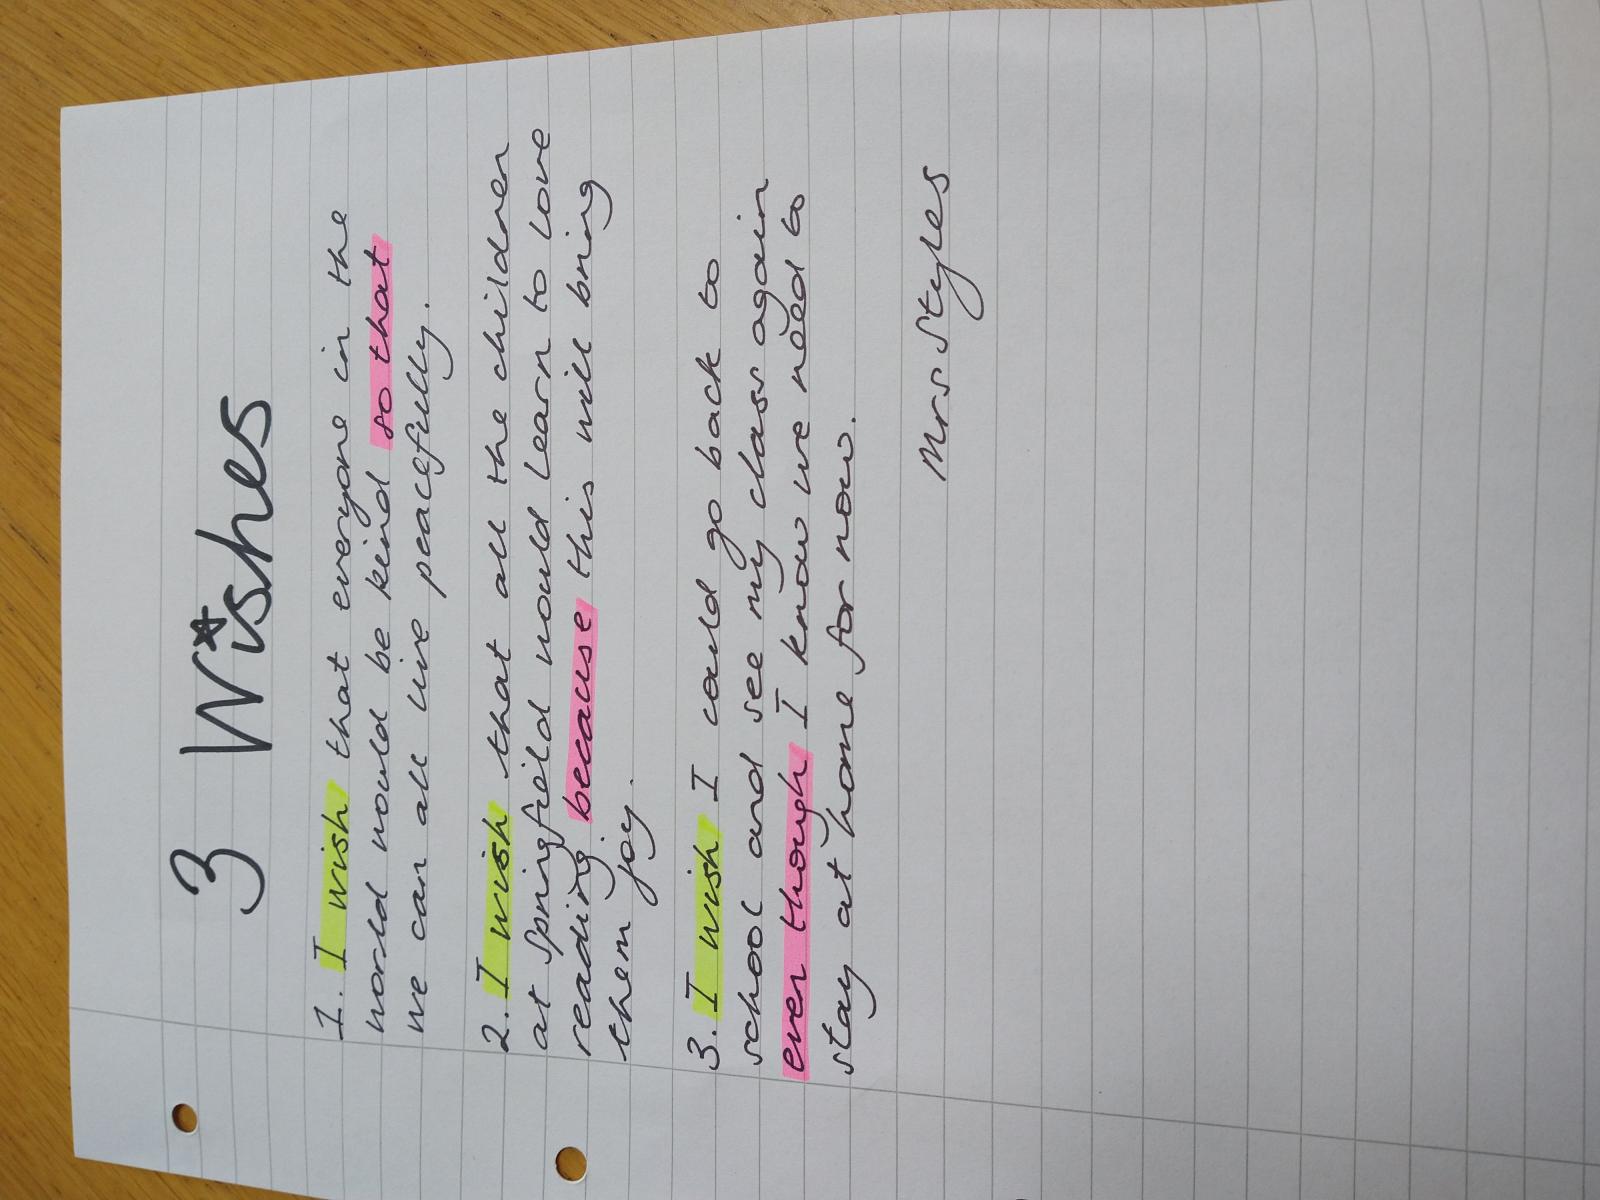 3 Wishes
1. I wish that everyone in the
world would be kind so that
we can all live peacefully.
2. I wish that all the children
at Springfield would learn to love
reading because this will bring
them joy.
3. I wish I could go back to
school and see my class again
even though I know we need to
stay at home for now.
Mrs Styles